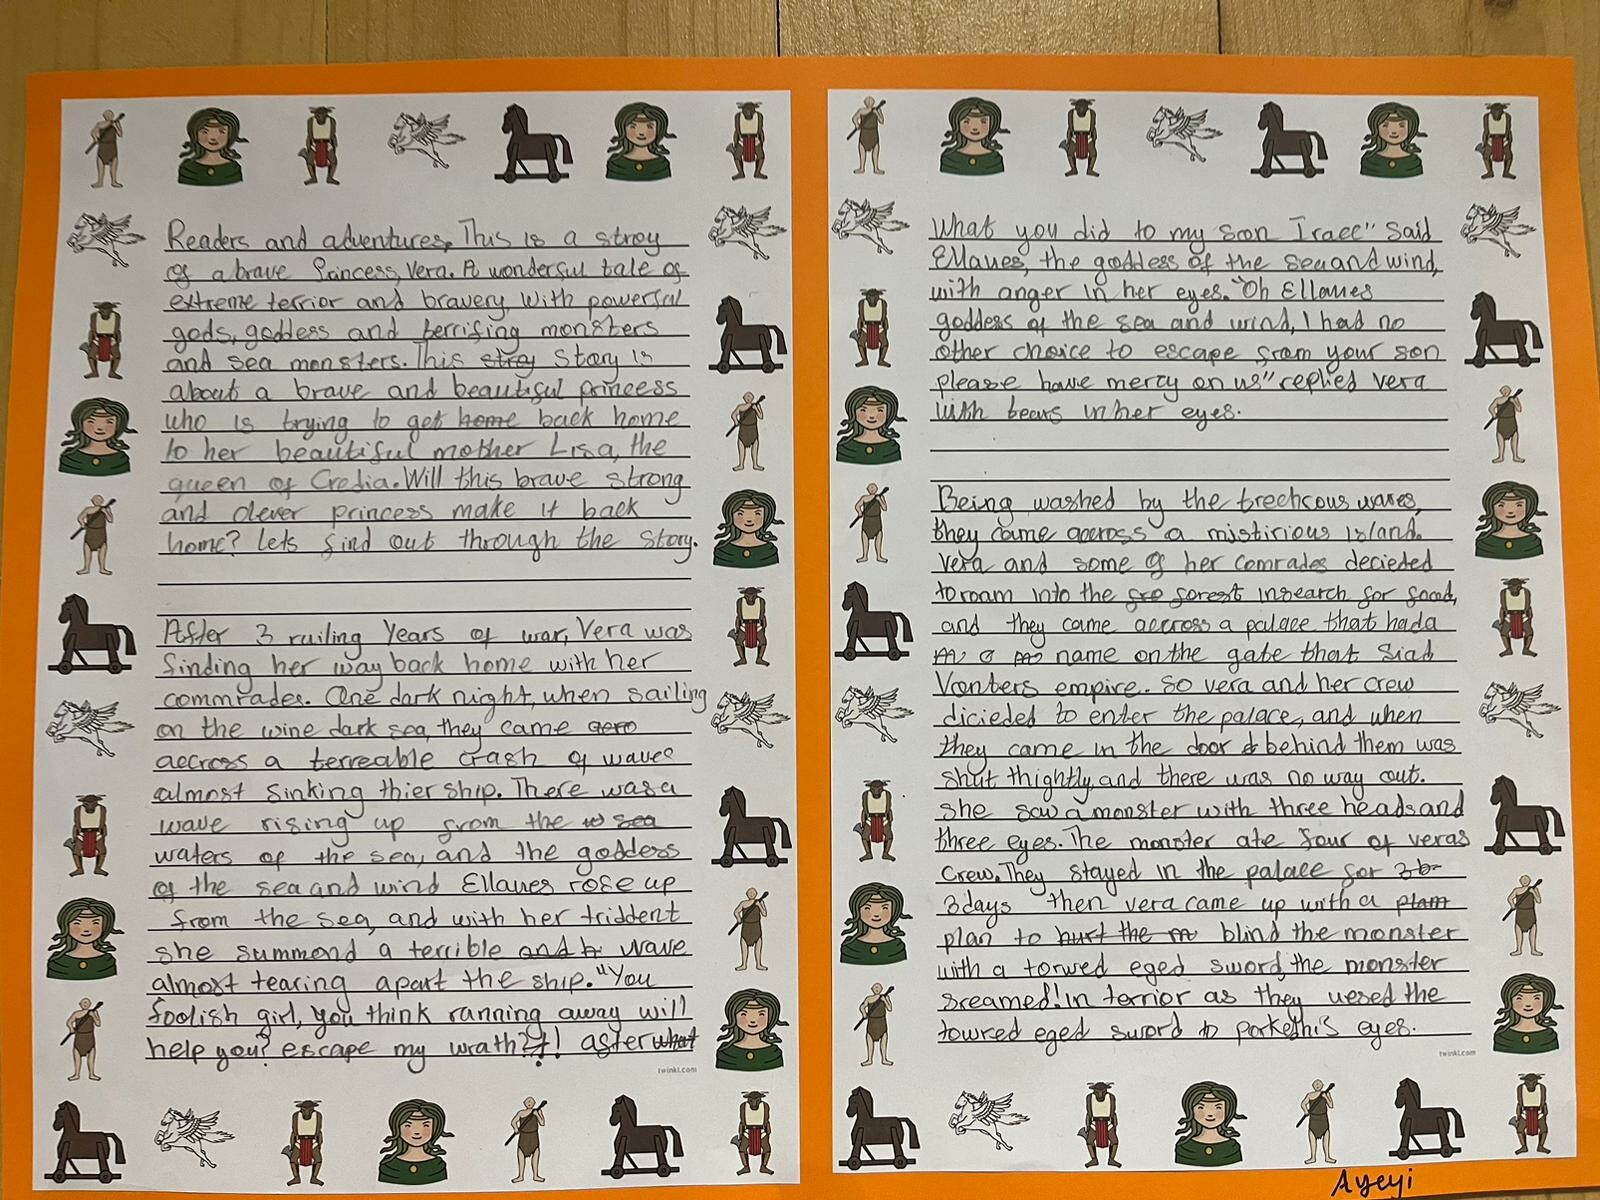 Readers and adventures, This is a stroy
of a brave Princess, Vera. A wonderful tale of
extreme terrior and bravery, with powerful
gods, goddess and terrifing monsters
and sea monsters. This stroy story is
about a brave and beautiful princess
who is trying to get home back home
to her beautiful mother Lisa, the
queen of Credia. Will this brave strong
and clever princess make it back
home? Lets find out through the story.
After 3 ruiling Years of war, Vera was
finding her way back home with her
commrades. One dark night, when sailing
on the wine dark sea, they came acro
accross a terreable crash of waves
almost sinking thier ship. There was a
wave rising up from the w sea
waters of the sea, and the goddess
of the sea and wind Ellaues rose up
from the sea, and with her triddent
she summond a terrible and h wave
almost tearing apart the ship. "You
foolish girl, you think running away will
help you? escape my wrath?! after what
twinkl.com
What you did to my soon Iraee" Said
Ellaues, the goddess of the sea and wind,
with anger in her eyes. "Oh Ellaues
goddess of the sea and wind, I had no
other choice to escape from your son
please have mercy on us" replied vera
with tears in her eyes.
Being washed by the treehcous waves,
they came accross a mistirious island.
Vera and some of her comrades decieded
to roam into the fre forest insearch for food,
and they came accross a palace that had a
m a m name on the gate that siad
Vanters empire. So vera and her crew
dicieded to enter the palace, and when
they came in the door & behind them was
shut thightly, and there was no way out.
She saw a monster with three heads and
three eyes. The monster ate four of veras
crew. They stayed in the palace for 3 b
3 days then vera came up with a plam
plan to hurt the m blind the monster
with a torwed eged sword, the monster
sreamed! in terrior as they uesed the
towred eged sword to porke his eyes.
twinkl.com
Ayeyi